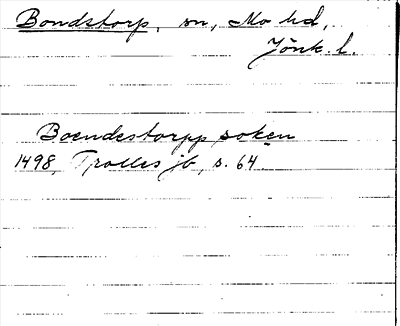 Bondstorp, sn, Mo hd,
Jönk. l.
Boendestorpp soken
1498, Trolles jb, s. 64.